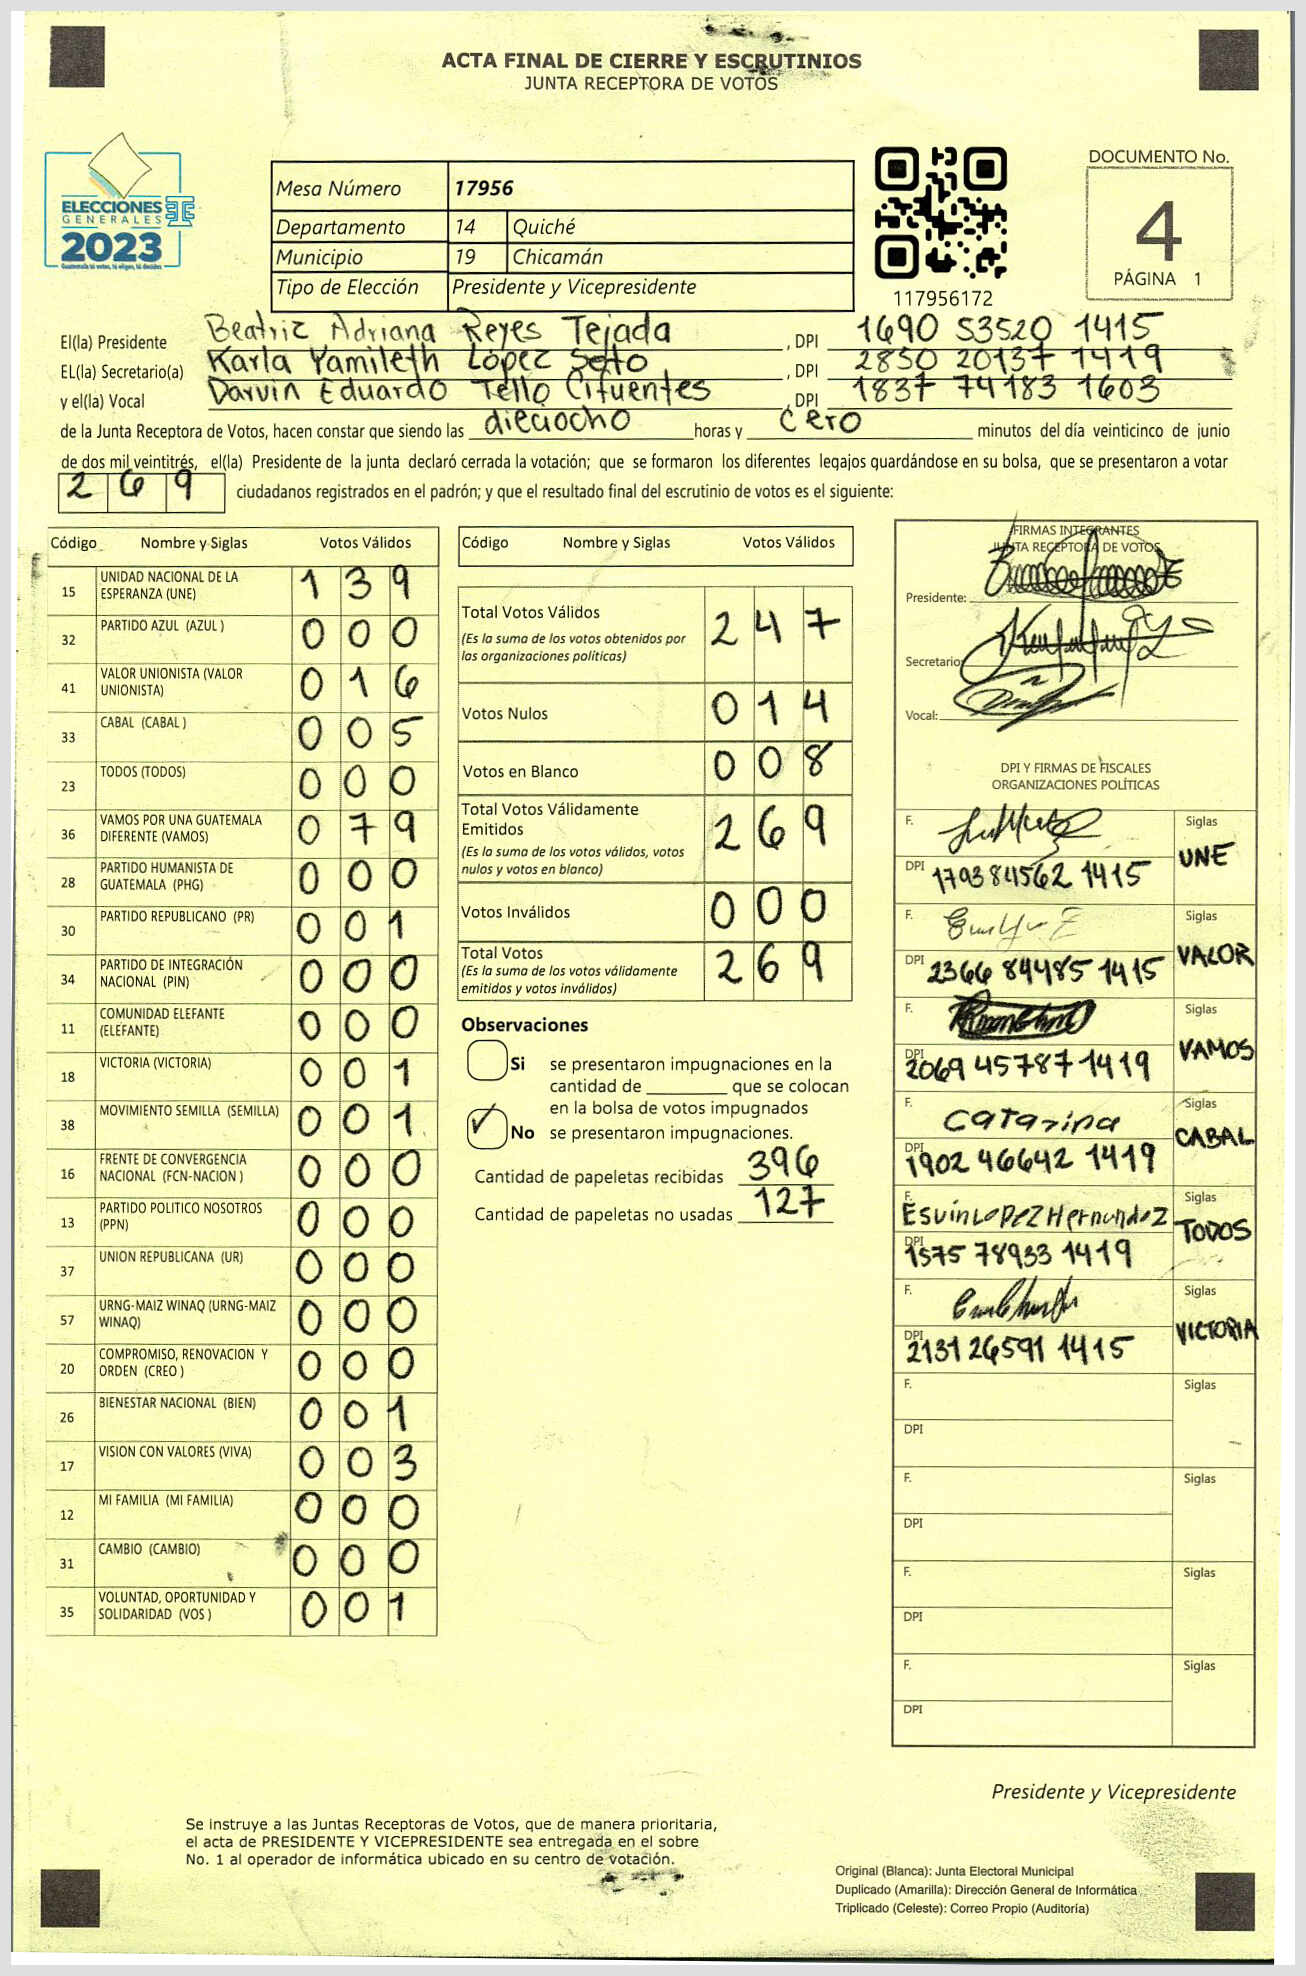 ACTA FINAL DE CIERRE Y ESCRUTINIOS
JUNTA RECEPTORA DE VOTOS
ELECCIONES
GENERALES
2023
Guatemala tú votas, tú eliges, tú decides
Mesa Número 17956
Departamento 14 Quiché
Municipio 19 Chicamán
Tipo de Elección Presidente y Vicepresidente
117956172
DOCUMENTO No.
4
PÁGINA 1
El(la) Presidente Beatriz Adriana Reyes Tejada , DPI 1690 53520 1415
EL(la) Secretario(a) Karla Yamileth López Soto , DPI 2850 20137 1419
y el(la) Vocal Darvin Eduardo Tello Cifuentes , DPI 1837 74183 1603
de la Junta Receptora de Votos, hacen constar que siendo las dieciocho horas y cero minutos del día veinticinco de junio
de dos mil veintitrés, el(la) Presidente de la junta declaró cerrada la votación; que se formaron los diferentes legajos guardándose en su bolsa, que se presentaron a votar
269 ciudadanos registrados en el padrón; y que el resultado final del escrutinio de votos es el siguiente:
Código Nombre y Siglas Votos Válidos
15 UNIDAD NACIONAL DE LA ESPERANZA (UNE) 1 3 9
32 PARTIDO AZUL (AZUL ) 0 0 0
41 VALOR UNIONISTA (VALOR UNIONISTA) 0 1 6
33 CABAL (CABAL ) 0 0 5
23 TODOS (TODOS) 0 0 0
36 VAMOS POR UNA GUATEMALA DIFERENTE (VAMOS) 0 7 9
28 PARTIDO HUMANISTA DE GUATEMALA (PHG) 0 0 0
30 PARTIDO REPUBLICANO (PR) 0 0 1
34 PARTIDO DE INTEGRACIÓN NACIONAL (PIN) 0 0 0
11 COMUNIDAD ELEFANTE (ELEFANTE) 0 0 0
18 VICTORIA (VICTORIA) 0 0 1
38 MOVIMIENTO SEMILLA (SEMILLA) 0 0 1
16 FRENTE DE CONVERGENCIA NACIONAL (FCN-NACION ) 0 0 0
13 PARTIDO POLITICO NOSOTROS (PPN) 0 0 0
37 UNION REPUBLICANA (UR) 0 0 0
57 URNG-MAIZ WINAQ (URNG-MAIZ WINAQ) 0 0 0
20 COMPROMISO, RENOVACION Y ORDEN (CREO ) 0 0 0
26 BIENESTAR NACIONAL (BIEN) 0 0 1
17 VISION CON VALORES (VIVA) 0 0 3
12 MI FAMILIA (MI FAMILIA) 0 0 0
31 CAMBIO (CAMBIO) 0 0 0
35 VOLUNTAD, OPORTUNIDAD Y SOLIDARIDAD (VOS ) 0 0 1
Código Nombre y Siglas Votos Válidos
Total Votos Válidos 2 4 7
(Es la suma de los votos obtenidos por
las organizaciones políticas)
Votos Nulos 0 1 4
Votos en Blanco 0 0 8
Total Votos Válidamente
Emitidos 2 6 9
(Es la suma de los votos válidos, votos
nulos y votos en blanco)
Votos Inválidos 0 0 0
Total Votos 2 6 9
(Es la suma de los votos válidamente
emitidos y votos inválidos)
Observaciones
Si se presentaron impugnaciones en la
cantidad de ________ que se colocan
en la bolsa de votos impugnados
✓ No se presentaron impugnaciones.
Cantidad de papeletas recibidas 396
Cantidad de papeletas no usadas 127
FIRMAS INTEGRANTES
JUNTA RECEPTORA DE VOTOS
Presidente:
Secretario:
Vocal:
DPI Y FIRMAS DE FISCALES
ORGANIZACIONES POLÍTICAS
F. Siglas
DPI 1793 84562 1415 UNE
F. Siglas
DPI 2366 84485 1415 VALOR
F. Siglas
DPI 2069 45787 1419 VAMOS
F. Catarina Siglas
DPI 1902 46642 1419 CABAL
F. Esvin Lopez Hernandez Siglas
DPI 1575 78933 1419 TODOS
F. Siglas
DPI 2131 26591 1415 VICTORIA
F. Siglas
DPI
F. Siglas
DPI
F. Siglas
DPI
F. Siglas
DPI
Presidente y Vicepresidente
Se instruye a las Juntas Receptoras de Votos, que de manera prioritaria,
el acta de PRESIDENTE Y VICEPRESIDENTE sea entregada en el sobre
No. 1 al operador de informática ubicado en su centro de votación.
Original (Blanca): Junta Electoral Municipal
Duplicado (Amarilla): Dirección General de Informática
Triplicado (Celeste): Correo Propio (Auditoría)